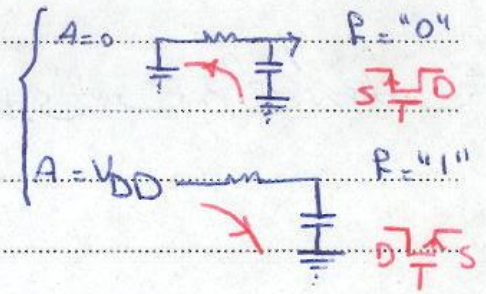 A=0 F="0"
S D
A=VDD F="1"
D S